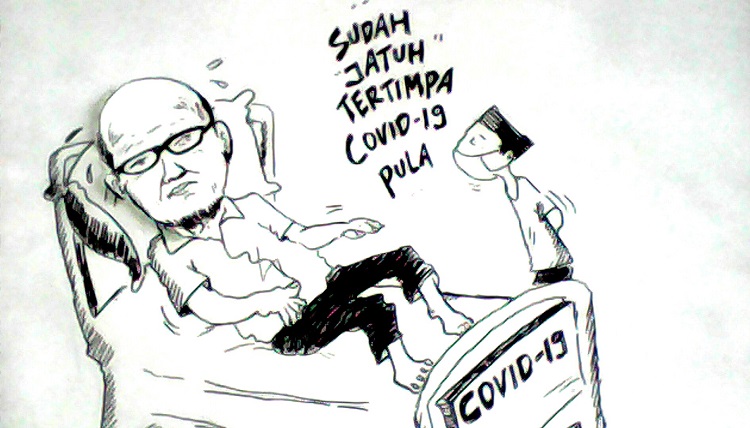 SUDAH
"JATUH"
TERTIMPA
COVID-19
PULA
COVID-19